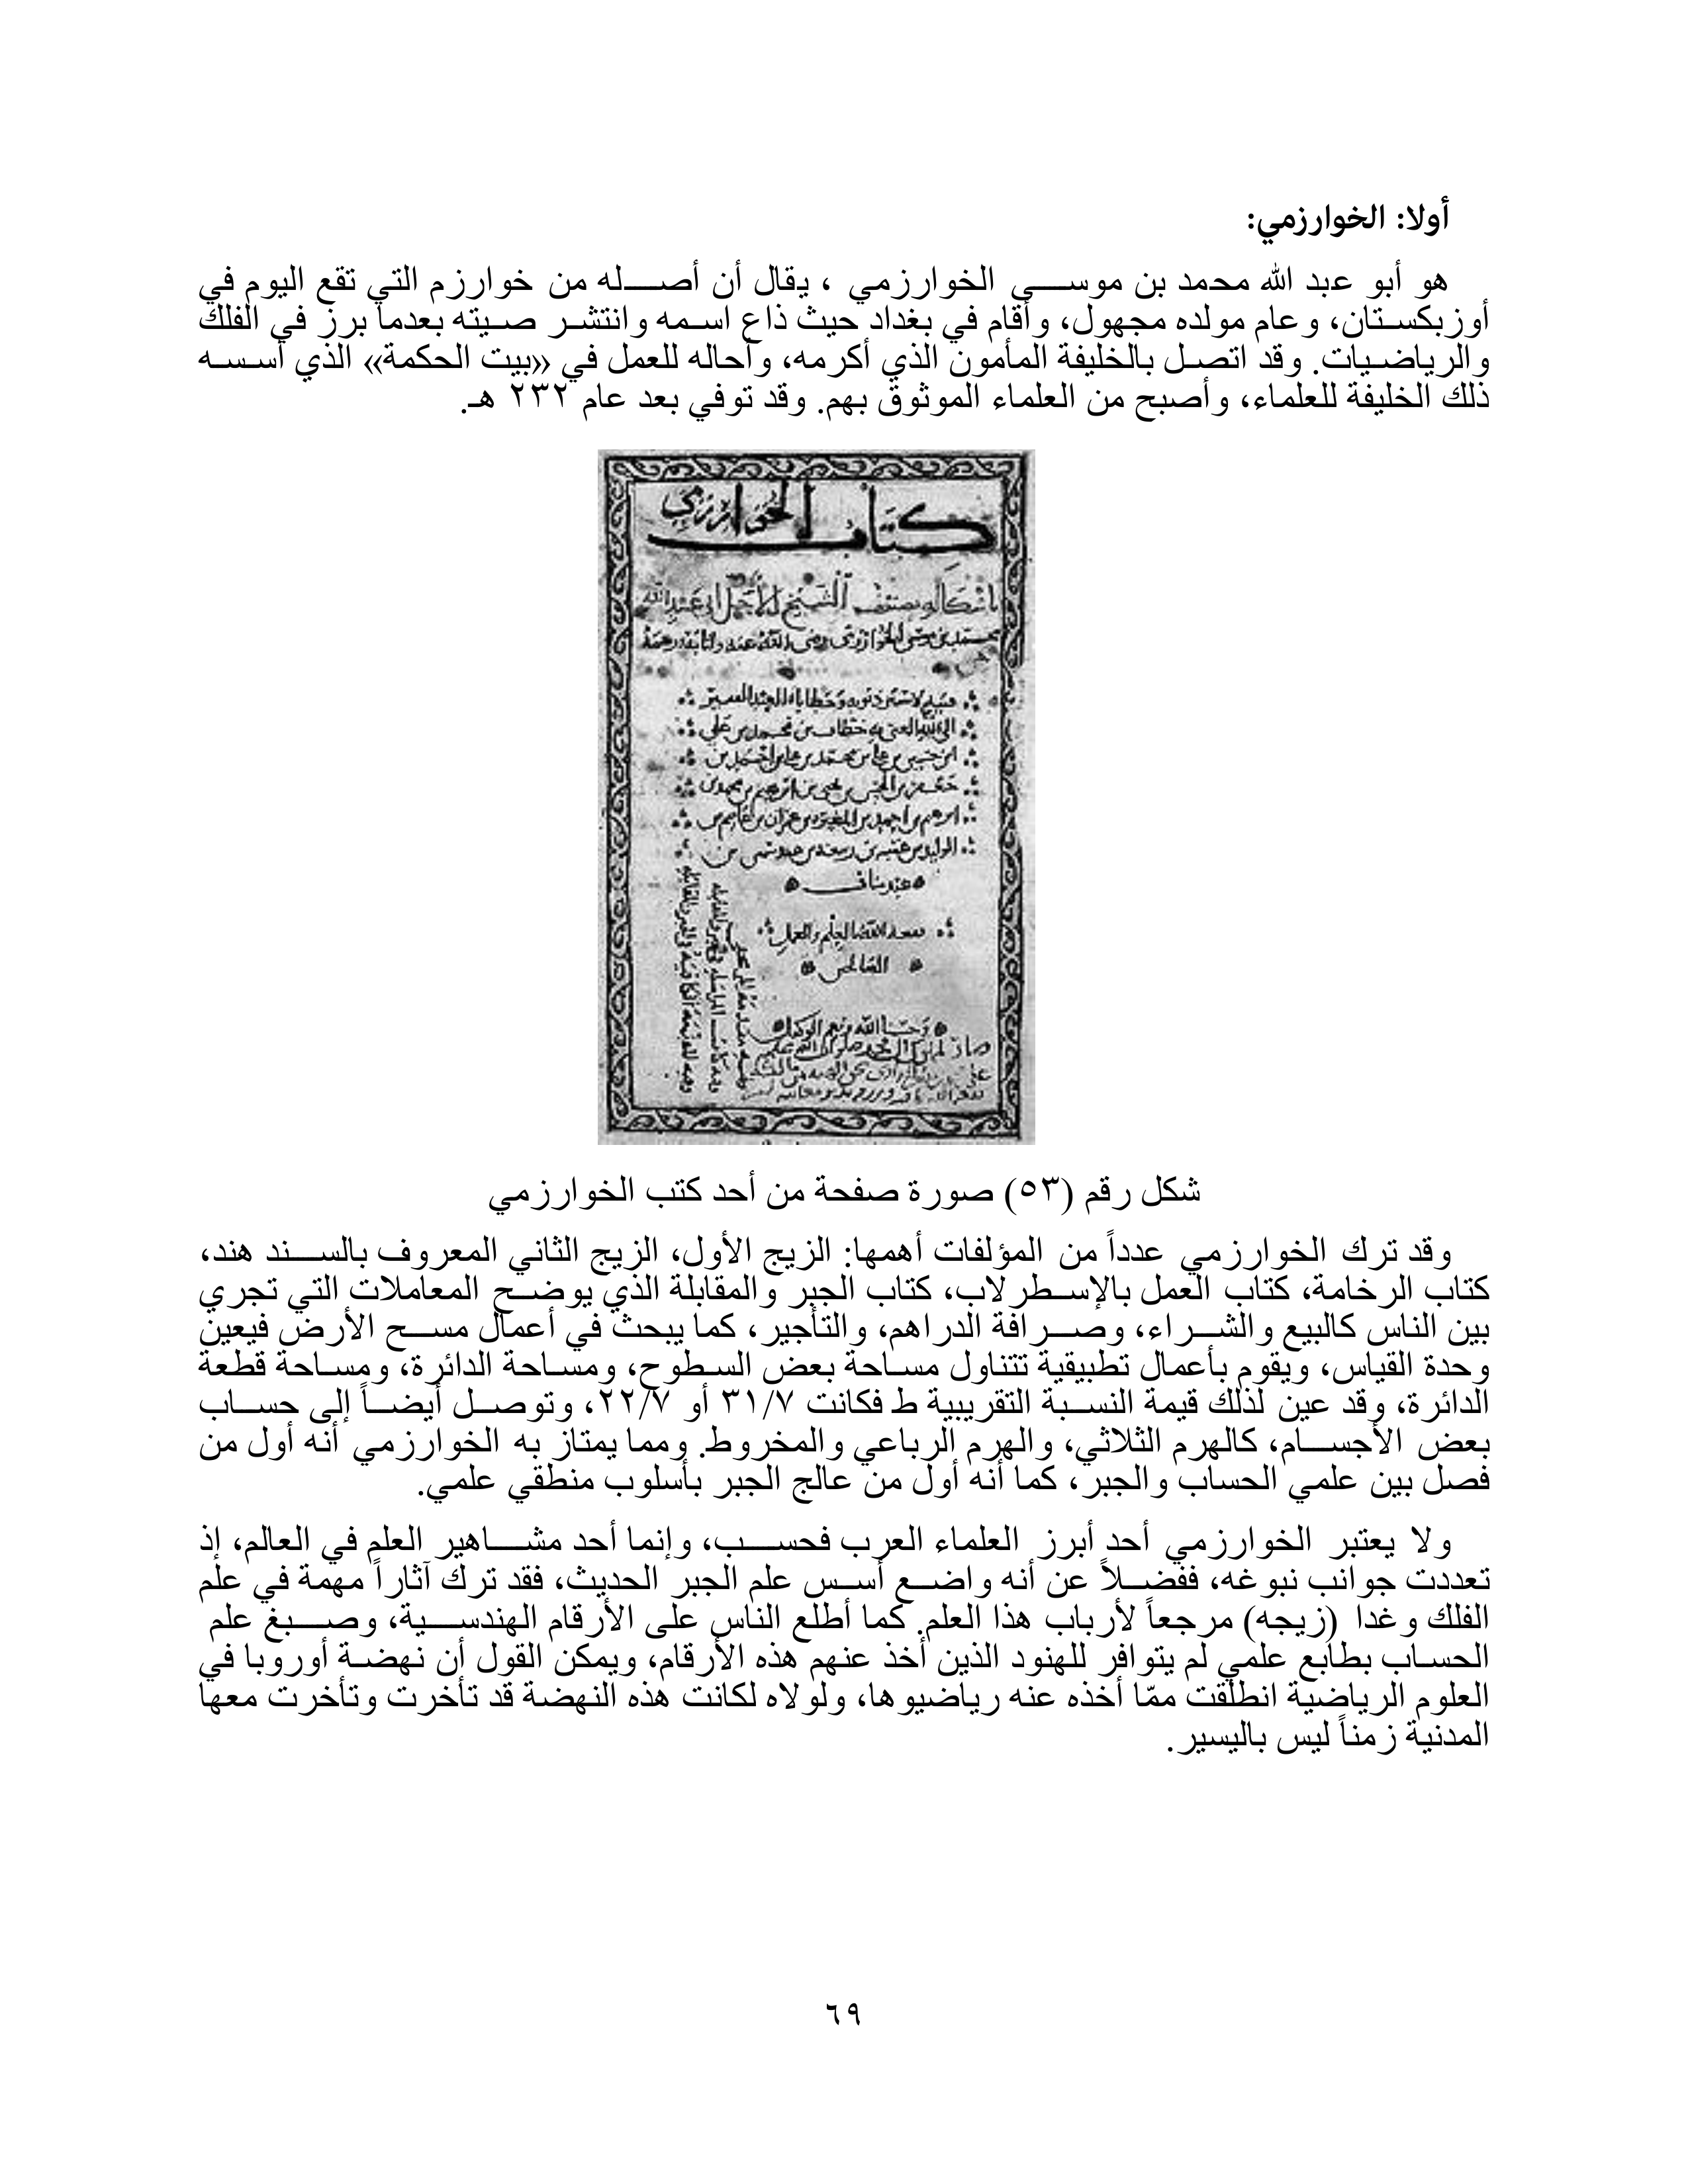 أولا: الخوارزمي:
هو أبو عبد الله محمد بن موسى الخوارزمي ، يقال أن أصله من خوارزم التي تقع اليوم في
أوزبكستان، وعام مولده مجهول، وأقام في بغداد حيث ذاع اسمه وانتشر صيته بعدما برز في الفلك
والرياضيات. وقد اتصل بالخليفة المأمون الذي أكرمه، وأحاله للعمل في «بيت الحكمة» الذي أسسه
ذلك الخليفة للعلماء، وأصبح من العلماء الموثوق بهم. وقد توفي بعد عام ٢٣٢ هـ.
كتاب الخوارزمي
شكل رقم (٥٣) صورة صفحة من أحد كتب الخوارزمي
وقد ترك الخوارزمي عدداً من المؤلفات أهمها: الزيج الأول، الزيج الثاني المعروف بالسند هند،
كتاب الرخامة، كتاب العمل بالإسطرلاب، كتاب الجبر والمقابلة الذي يوضح المعاملات التي تجري
بين الناس كالبيع والشراء، وصرافة الدراهم، والتأجير، كما يبحث في أعمال مسح الأرض فيعين
وحدة القياس، ويقوم بأعمال تطبيقية تتناول مساحة بعض السطوح، ومساحة الدائرة، ومساحة قطعة
الدائرة، وقد عين لذلك قيمة النسبة التقريبية ط فكانت ٣١/٧ أو ٢٢/٧، وتوصل أيضاً إلى حساب
بعض الأجسام، كالهرم الثلاثي، والهرم الرباعي والمخروط. ومما يمتاز به الخوارزمي أنه أول من
فصل بين علمي الحساب والجبر، كما أنه أول من عالج الجبر بأسلوب منطقي علمي.
ولا يعتبر الخوارزمي أحد أبرز العلماء العرب فحسب، وإنما أحد مشاهير العلم في العالم، إذ
تعددت جوانب نبوغه، ففضلاً عن أنه واضع أسس علم الجبر الحديث، فقد ترك آثاراً مهمة في علم
الفلك وغدا (زيجه) مرجعاً لأرباب هذا العلم. كما أطلع الناس على الأرقام الهندسية، وصبغ علم
الحساب بطابع علمي لم يتوافر للهنود الذين أخذ عنهم هذه الأرقام، ويمكن القول أن نهضة أوروبا في
العلوم الرياضية انطلقت ممّا أخذه عنه رياضيوها، ولولاه لكانت هذه النهضة قد تأخرت وتأخرت معها
المدنية زمناً ليس باليسير.
٦٩